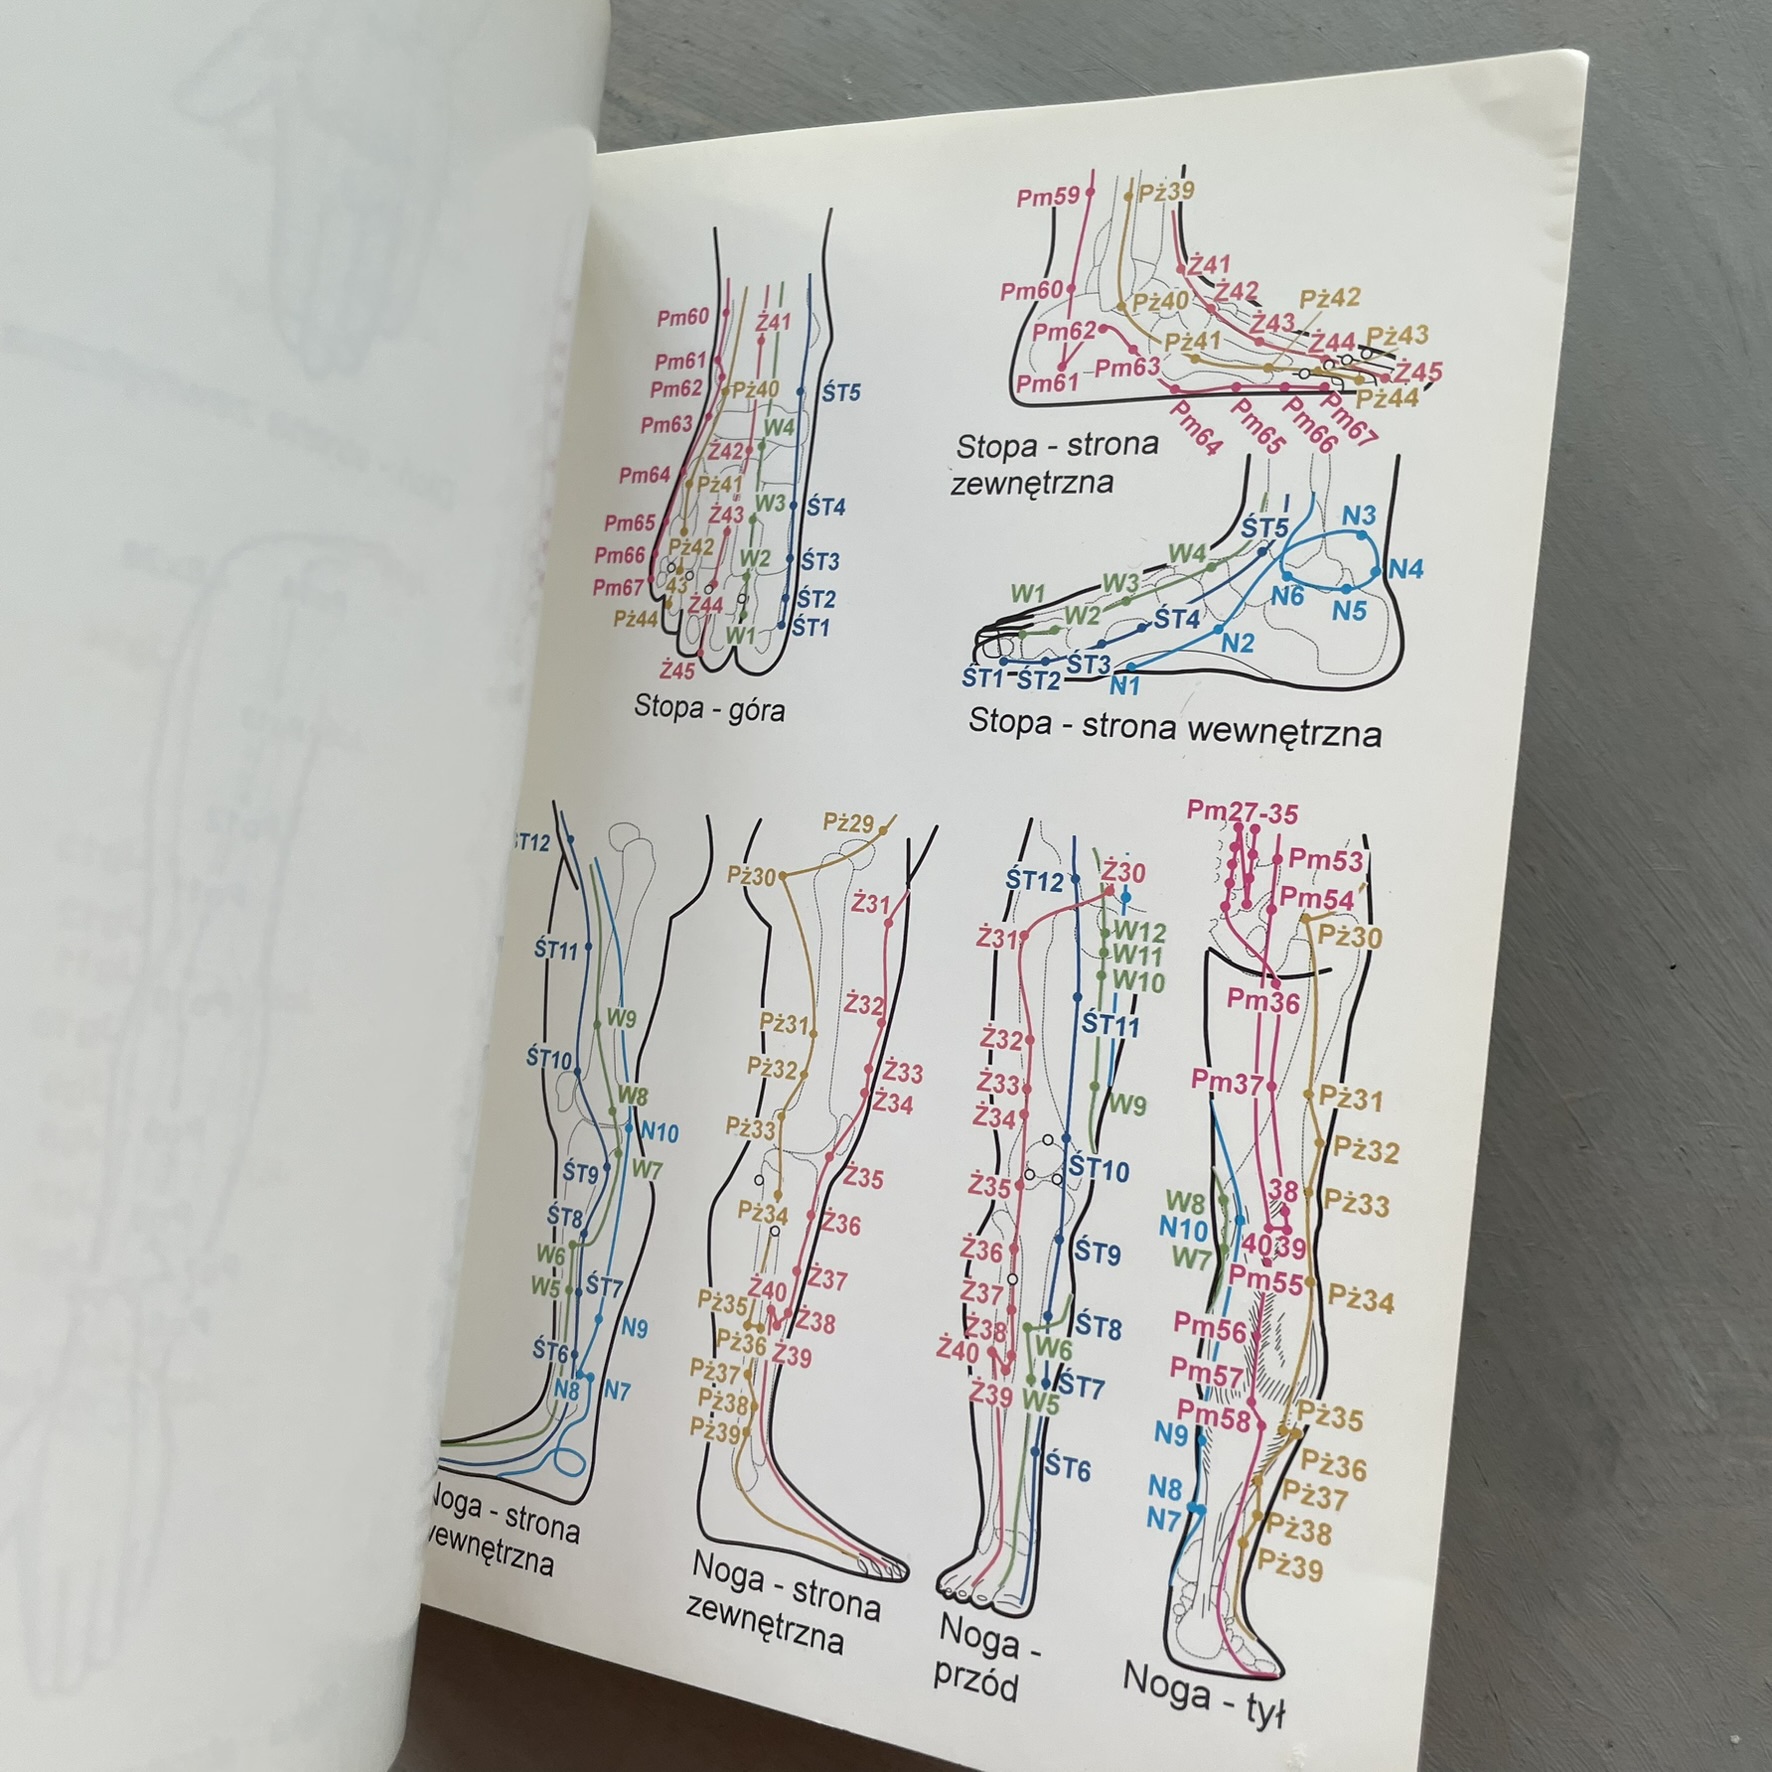 Pm60
Ż41
Pm61
Pm62
Pż40
ŚT5
Pm63
W4
Ż42
Pm64
Pż41
W3
ŚT4
Ż43
Pm65
Pż42
Pm66
W2
ŚT3
Pm67
43
Ż44
ŚT2
Pż44
W1
ŚT1
Ż45
Stopa - góra
Pm59
Pż39
Ż41
Pm60
Pż40
Ż42
Pż42
Pm62
Pż41
Ż43
Ż44
Pż43
Pm61
Pm63
Ż45
Pż44
Pm64
Pm65
Pm66
Pm67
Stopa - strona
zewnętrzna
ŚT5
N3
W4
N4
W1
W3
N6
N5
W2
ŚT4
N2
ŚT3
ŚT1
ŚT2
N1
Stopa - strona wewnętrzna
ŚT11
W9
ŚT10
W8
N10
ŚT9
W7
ŚT8
W6
W5
ŚT7
N9
ŚT6
N8
N7
Noga - strona
wewnętrzna
Pż29
Pż30
Ż31
Ż32
Pż31
Pż32
Ż33
Ż34
Pż33
Ż35
Pż34
Ż36
Ż37
Ż40
Pż35
Ż38
Pż36
Ż39
Pż37
Pż38
Pż39
Noga - strona
zewnętrzna
ŚT12
Ż30
Ż31
W12
W11
W10
ŚT11
Ż32
Ż33
W9
Ż34
ŚT10
Ż35
Ż36
ŚT9
Ż37
Ż38
ŚT8
Ż40
W6
Ż39
ŚT7
W5
ŚT6
Noga -
przód
Pm27-35
Pm53
Pm54
Pż30
Pm36
Pm37
Pż31
Pż32
38
W8
Pż33
N10
W7
40
39
Pm55
Pż34
Pm56
Pm57
Pm58
Pż35
N9
Pż36
N8
Pż37
N7
Pż38
Pż39
Noga - tył